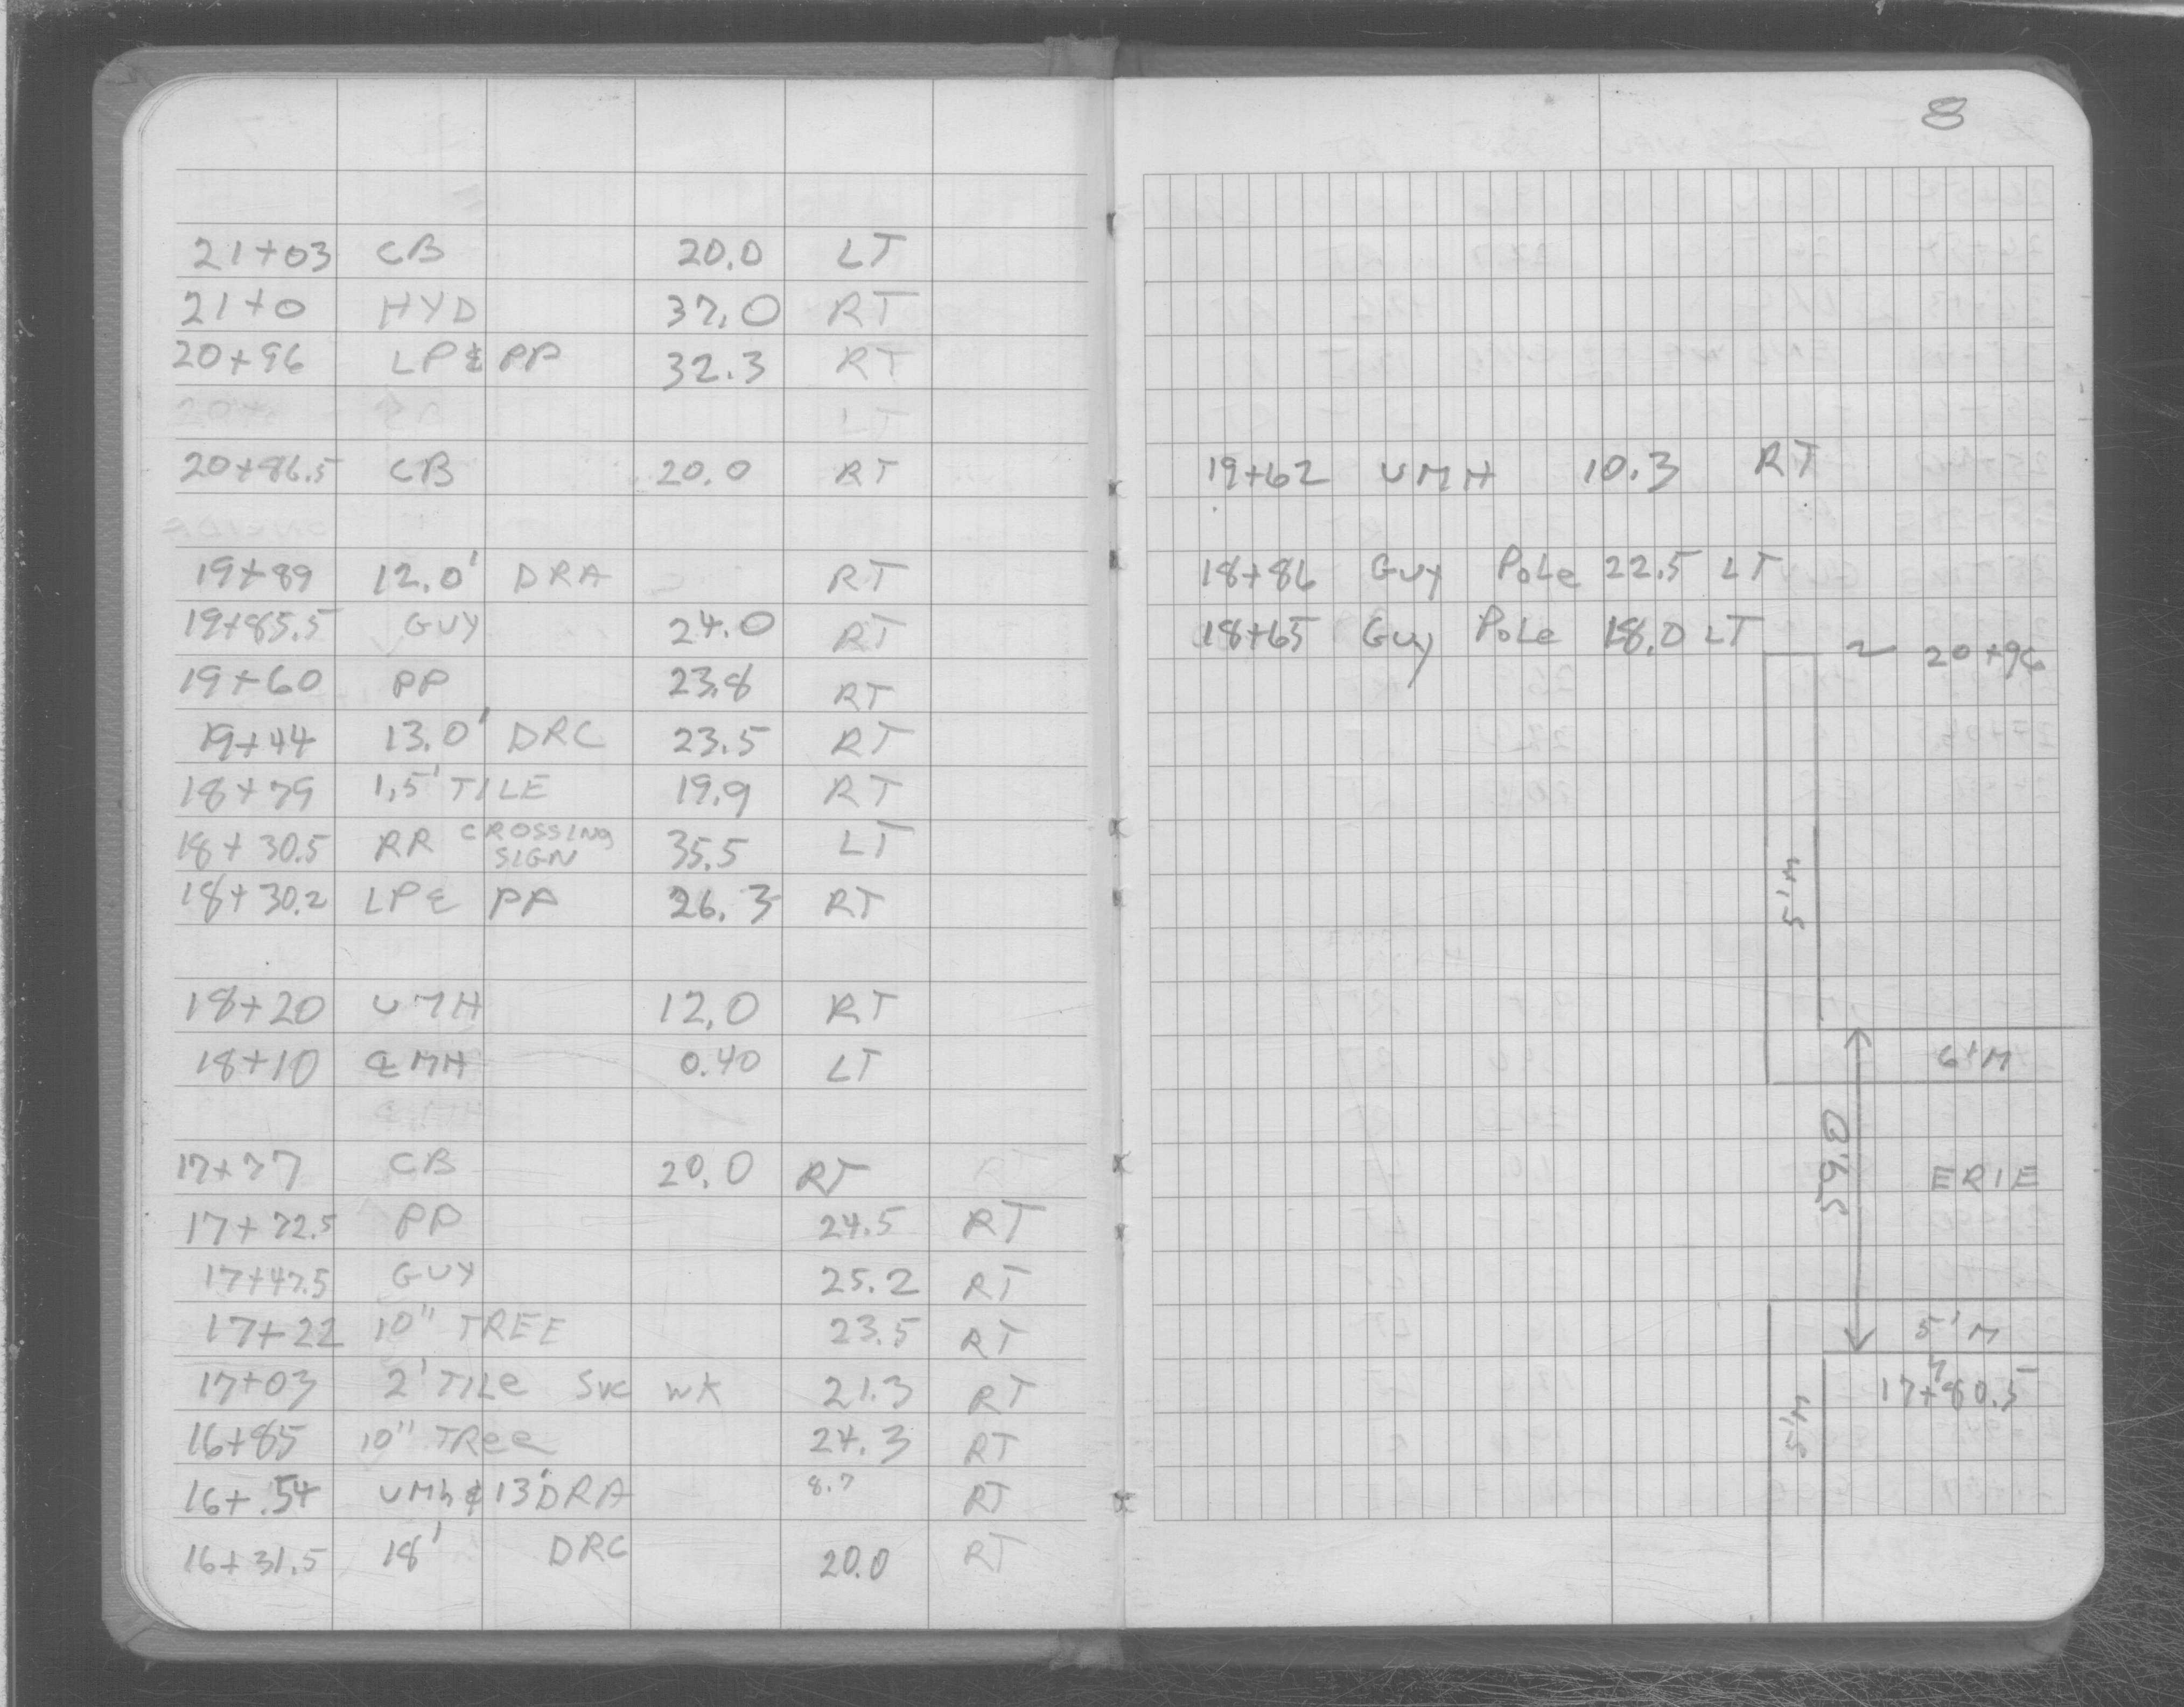 21+03 CB 20.0 LT
21+0 HYD 37.0 RT
20+96 LP & PP 32.3 RT
20+86.5 CB 20.0 RT
19+89 12.0' DRA RT
19+85.5 GUY 24.0 RT
19+60 PP 23.8 RT
19+44 13.0' DRC 23.5 RT
18+79 1.5' TILE 19.9 RT
18+30.5 RR CROSSING SIGN 35.5 LT
18+30.2 LP & PP 26.3 RT
18+20 UMH 12.0 RT
18+10 ℄ MH 0.40 LT
17+77 CB 20.0 RT
17+72.5 PP 24.5 RT
17+47.5 GUY 25.2 RT
17+22 10" TREE 23.5 RT
17+03 2' TILe SVC WK 21.3 RT
16+85 10" TRee 24.3 RT
16+.54 UMh & 13' DRA 8.7 RT
16+31.5 18' DRC 20.0 RT
8
19+62 UMH 10.3 RT
18+86 Guy PoLe 22.5 LT
18+65 Guy PoLe 18.0 LT
~ 20+96
5'M
6'M
59.0
ERIE
5'M
17+80.5
5'M